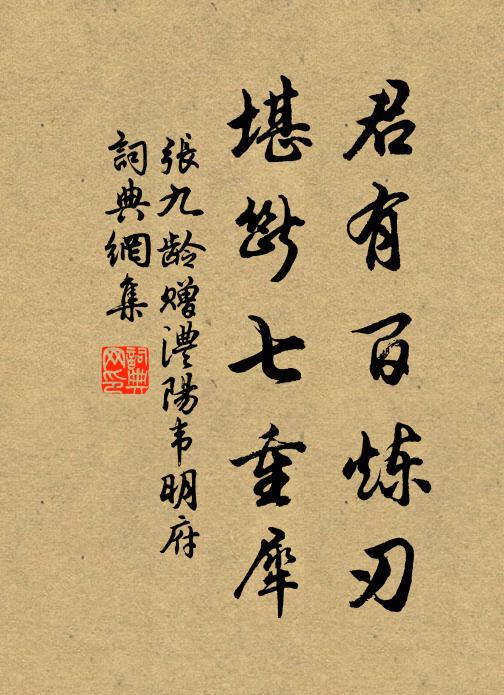 君有百炼刃
堪斷七重犀
張九龄赠澧陽韦明府
詞典網集
詞典網印